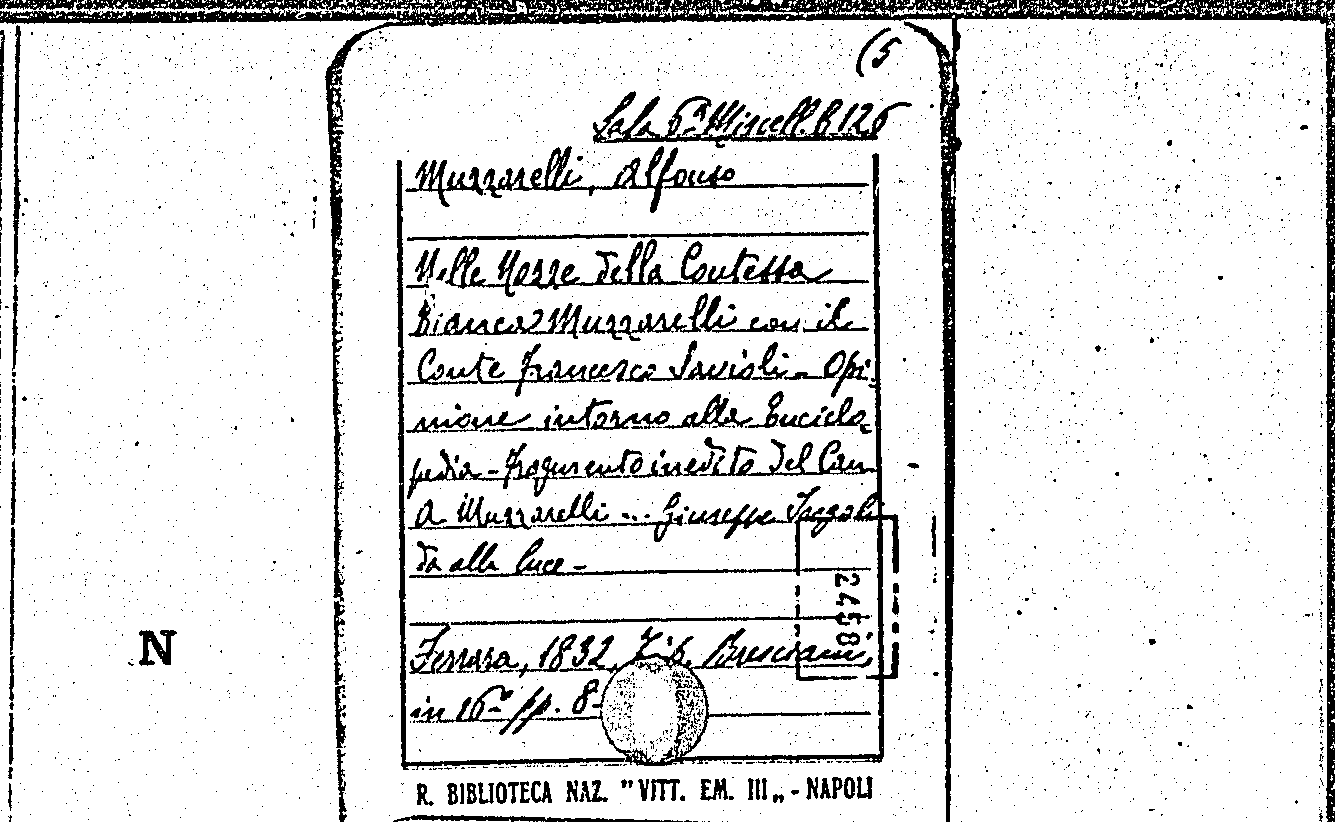 (5
Sala 6ª Miscell. B 126
Muzzarelli, Alfonso
Nelle Nozze della Contessa
Bianca Muzzarelli con il
Conte Francesco Savioli - Opi-
nione intorno alla Enciclo-
pedia - Fragmento inedito del Can
A. Muzzarelli ... Giuseppe
da alla luce -
Ferrara, 1832, Tip. Bresciani,
in 16º pp. 8-
2458
N
R. BIBLIOTECA NAZ. "VITT. EM. III„ - NAPOLI